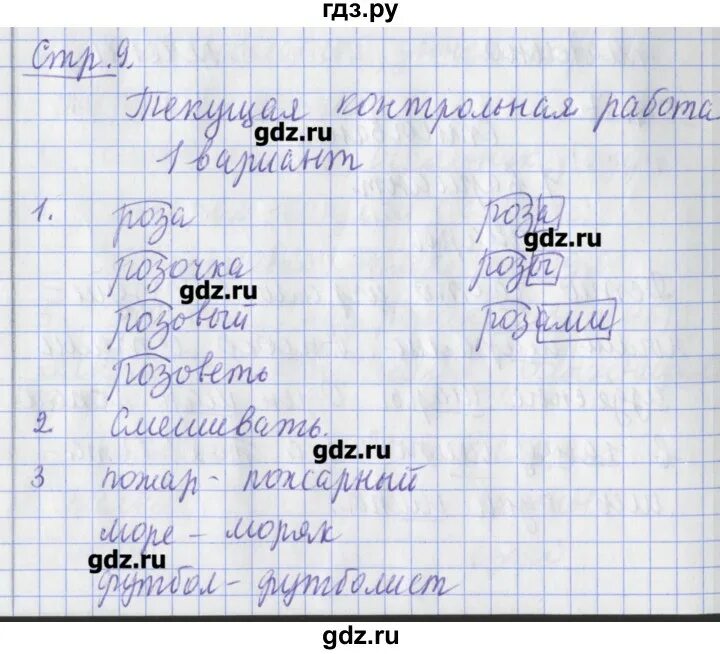 гдз.ру
Стр. 9.
Текущая контрольная работа
gdz.ru
1 вариант
1. роза роза
gdz.ru
розочка розы
gdz.ru
розовый розами
розоветь
2 Смешивать.
gdz.ru
3 пожар - пожарный
море - моряк
gdz.ru
футбол - футболист
gdz.ru